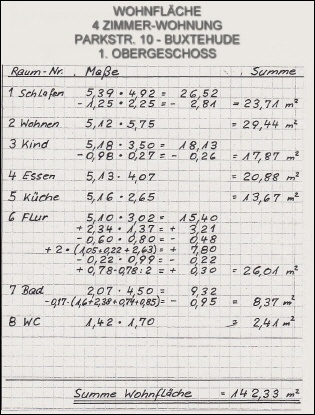 WOHNFLÄCHE
4 ZIMMER-WOHNUNG
PARKSTR. 10 - BUXTEHUDE
1. OBERGESCHOSS
Raum-Nr. Maße Summe
1 Schlafen 5,39 · 4,92 = 26,52
- 1,25 · 2,25 = - 2,81 = 23,71 m²
2 Wohnen 5,12 · 5,75 = 29,44 m²
3 Kind 5,18 · 3,50 = 18,13
- 0,98 · 0,27 = - 0,26 = 17,87 m²
4 Essen 5,13 · 4,07 = 20,88 m²
5 Küche 5,16 · 2,65 = 13,67 m²
6 Flur 5,10 · 3,02 = 15,40
+ 2,34 · 1,37 = + 3,21
- 0,60 · 0,80 = - 0,48
+ 2 · (1,05+0,22+2,63) = + 7,80
- 0,22 · 0,99 = - 0,22
+ 0,78·0,78:2 = + 0,30 = 26,01 m²
7 Bad 2,07 · 4,50 = 9,32
-0,17·(1,6+2,38+0,74+0,85) = - 0,95 = 8,37 m²
8 WC 1,42 · 1,70 = 2,41 m²
Summe Wohnfläche = 142,33 m²